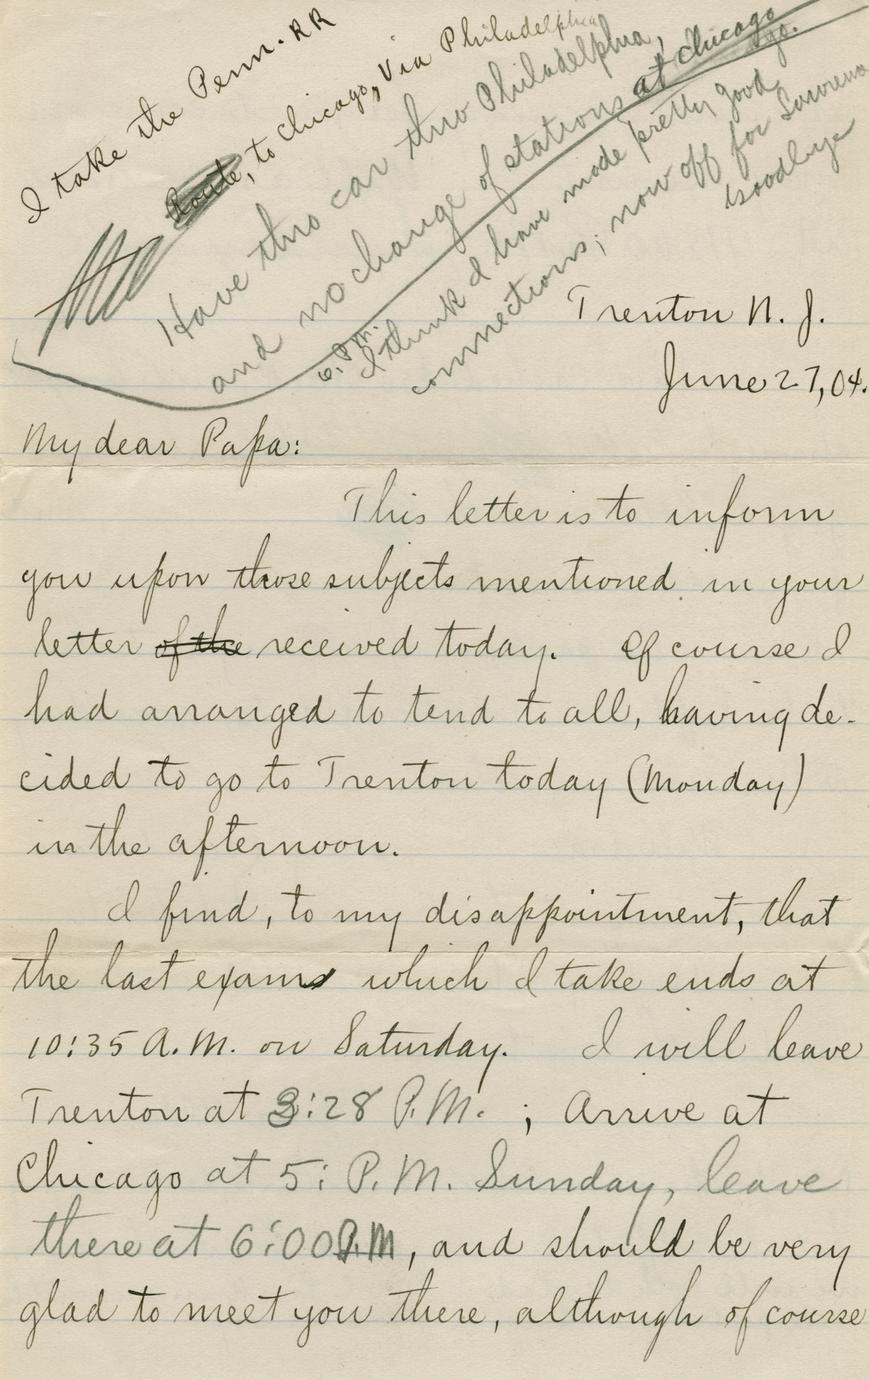 I take the Penn. RR
Route, to Chicago, Via Philadelphia
Have thro car thro Philadelphia,
and no change of stations at chicago
6. P.M.
I think I have made pretty good
connections; now off for Lawrence
Goodbye
Trenton N. J.
June 27, 04.
My dear Papa:
This letter is to inform
you upon those subjects mentioned in your
letter of the received today. Of course I
had arranged to tend to all, having de-
cided to go to Trenton today (Monday)
in the afternoon.
I find, to my disappointment, that
the last exams which I take ends at
10:35 A.M. on Saturday. I will leave
Trenton at 3:28 P.M. ; Arrive at
Chicago at 5: P.M. Sunday, leave
there at 6:00 P.M, and should be very
glad to meet you there, although of course